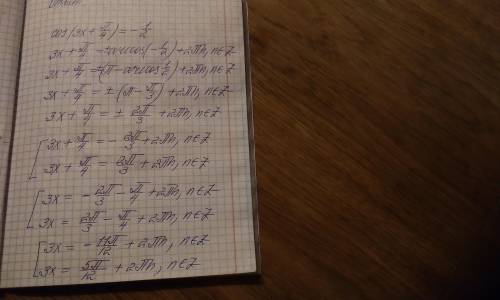 cos(3x + π/4) = -1/2
3x + π/4 = ±arccos(-1/2) + 2πn, n∈Z
3x + π/4 = ±(π - arccos 1/2) + 2πn, n∈Z
3x + π/4 = ±(π - π/3) + 2πn, n∈Z
3x + π/4 = ± 2π/3 + 2πn, n∈Z
[ 3x + π/4 = - 2π/3 + 2πn, n∈Z
3x + π/4 = 2π/3 + 2πn, n∈Z
[ 3x = - 2π/3 - π/4 + 2πn, n∈Z
3x = 2π/3 - π/4 + 2πn, n∈Z
[ 3x = - 11π/12 + 2πn, n∈Z
3x = 5π/12 + 2πn, n∈Z